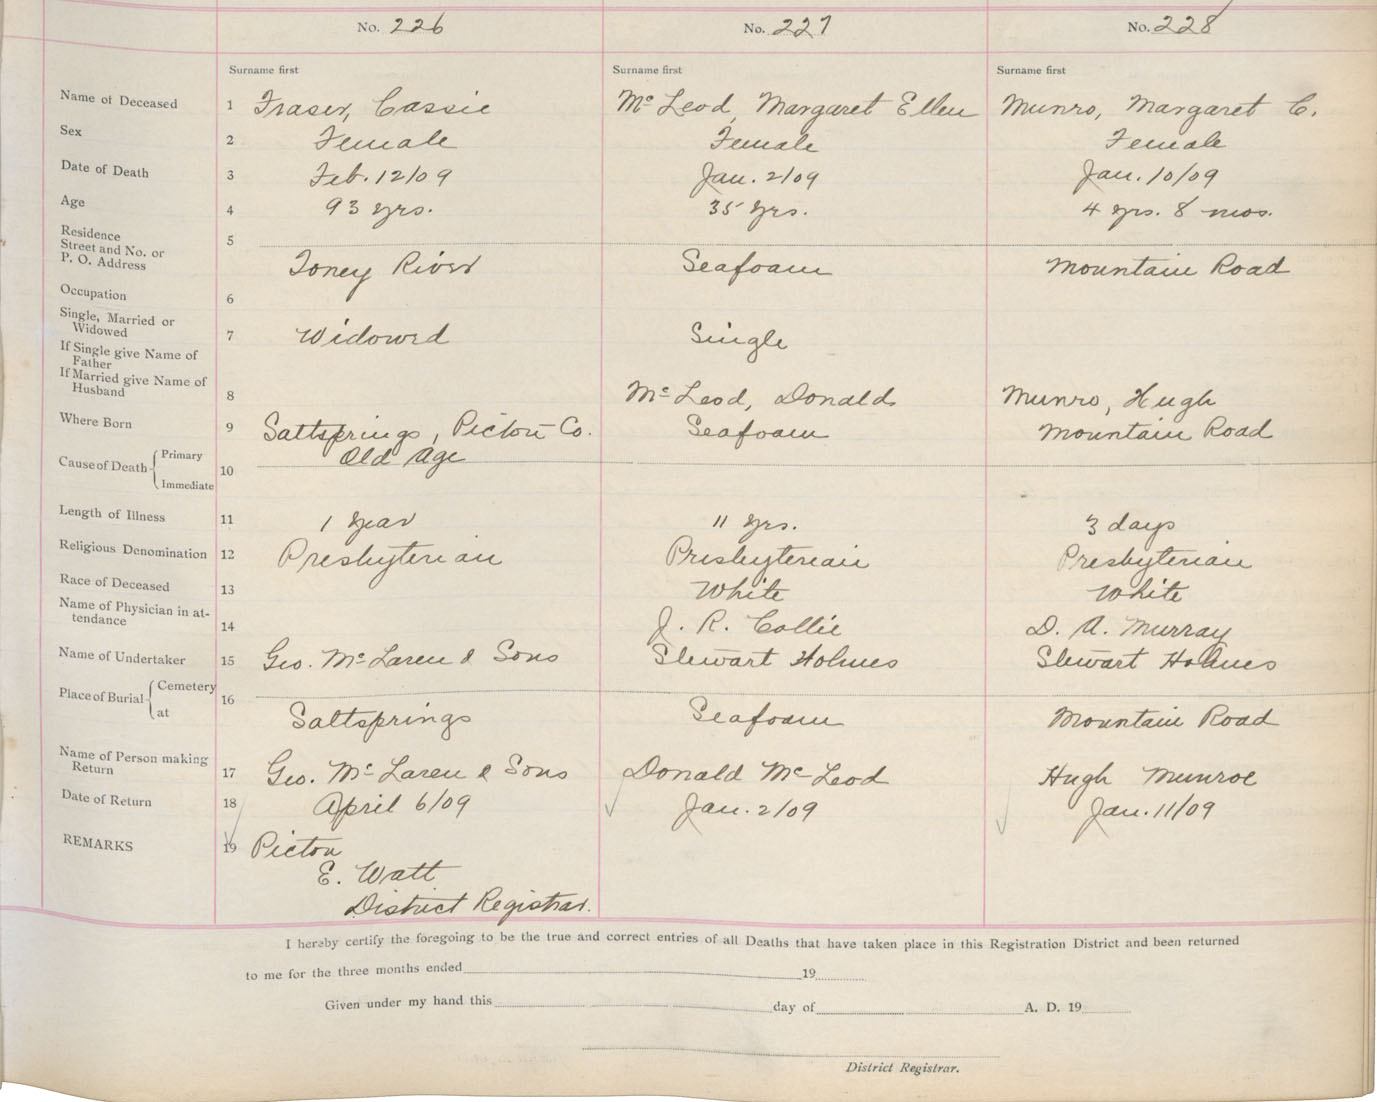 No. 226 No. 227 No. 228
Surname first Surname first Surname first
Name of Deceased 1 Fraser, Cassie McLeod, Margaret Ellen Munro, Margaret C.
Sex 2 Female Female Female
Date of Death 3 Feb. 12/09 Jan. 2/09 Jan. 10/09
Age 4 93 yrs. 35 yrs. 4 yrs. 8 mos.
Residence 5
Street and No. or
P. O. Address Toney River Seafoam Mountain Road
Occupation 6
Single, Married or
Widowed 7 Widowed Single
If Single give Name of
Father
If Married give Name of
Husband 8 McLeod, Donald Munro, Hugh
Where Born 9 Saltsprings, Pictou Co. Seafoam Mountain Road
Cause of Death Primary Old Age
10
Immediate
Length of Illness 11 1 year 11 yrs. 3 days
Religious Denomination 12 Presbyterian Presbyterian Presbyterian
Race of Deceased 13 White White
Name of Physician in at-
tendance 14 J. R. Collie D. A. Murray
Name of Undertaker 15 Geo. McLaren & Sons Stewart Holmes Stewart Holmes
Place of Burial Cemetery 16
at Saltsprings Seafoam Mountain Road
Name of Person making
Return 17 Geo. McLaren & Sons Donald McLeod Hugh Munroe
Date of Return 18 April 6/09 Jan. 2/09 Jan. 11/09
REMARKS 19 Pictou
E. Watt
District Registrar.
I hereby certify the foregoing to be the true and correct entries of all Deaths that have taken place in this Registration District and been returned
to me for the three months ended 19
Given under my hand this day of A. D. 19
District Registrar.